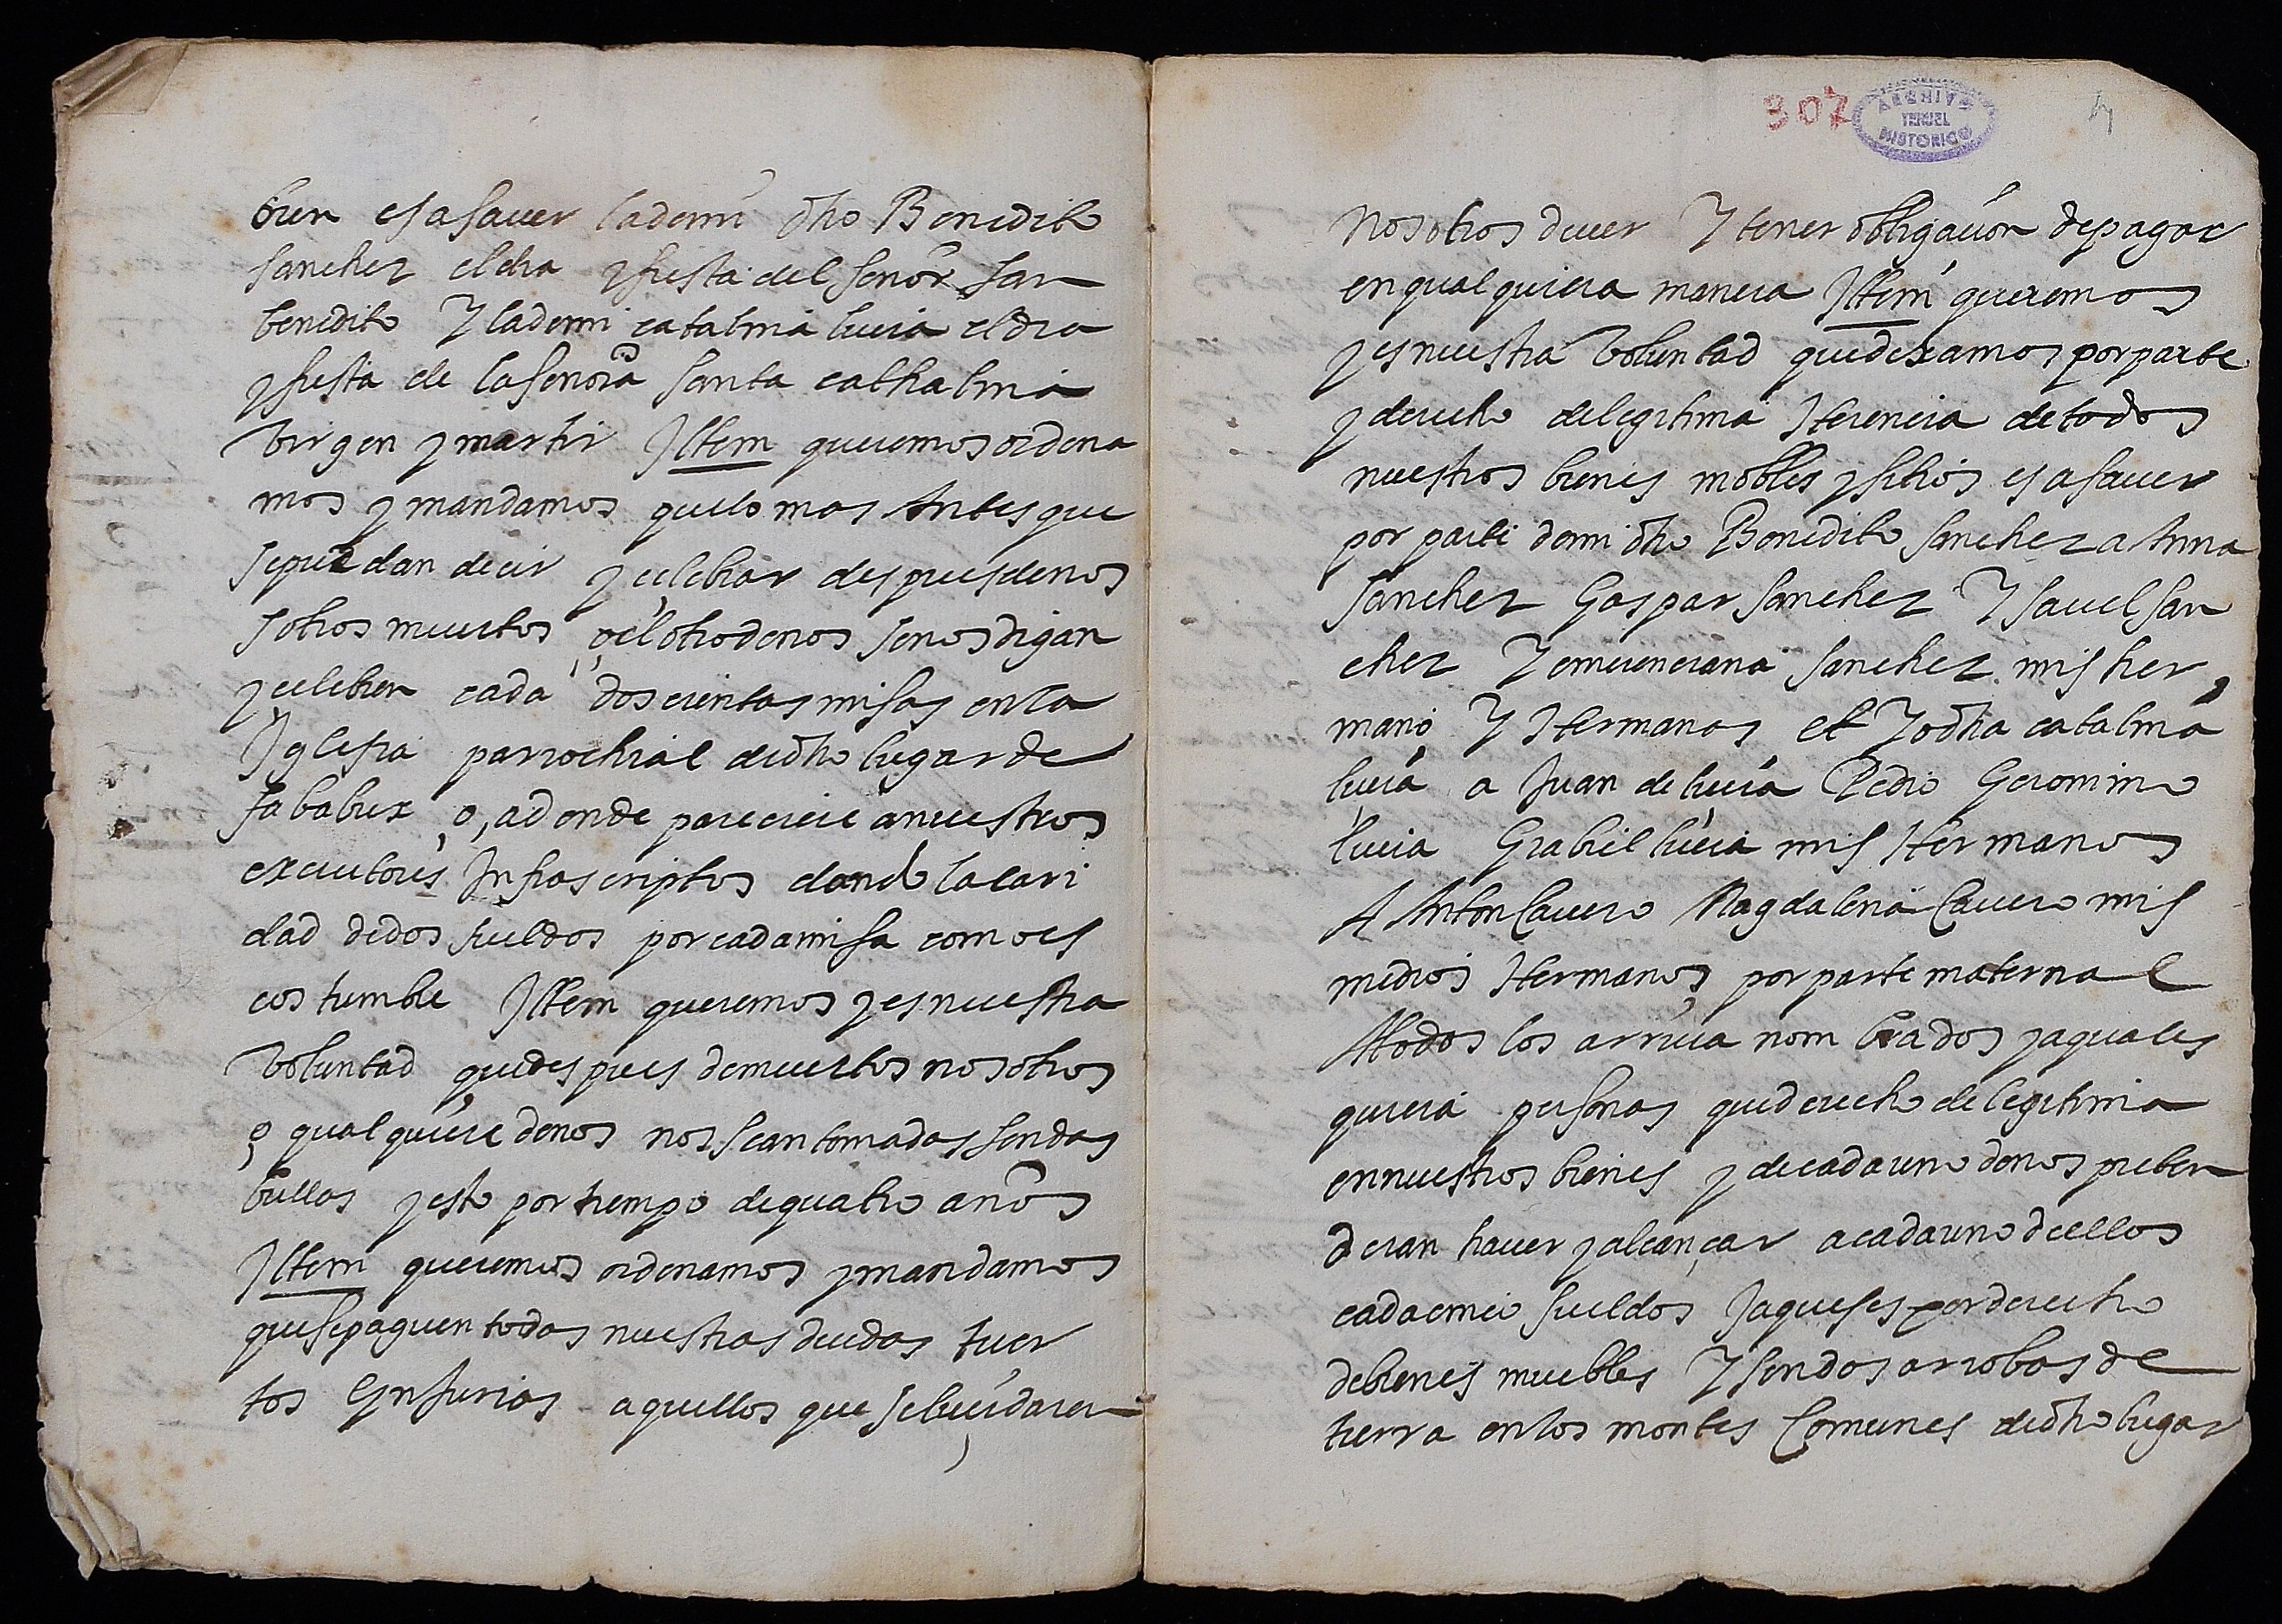 bien es a sauer la de mi dho Benedito
sanchez el dia y fiesta del señor san
benedito Y la de mi catalina lucia el dia
y fiesta de la señora santa cathalina
Virgen y martir Jttem queremos ordena
mos y mandamos que lo mas Antes que
se puedan decir y celebrar despues de nos
sotros muertos o el otro de nos se nos digan
y celebren cada doscientas misas en la
Iglesia parrochial de dho lugar de
Jababux o, adonde pareciere a nuestros
executores Infrascriptos dando la cari
dad de dos sueldos por cada misa como es
costumbre Jttem queremos y es nuestra
Voluntad que despues de muertos nosotros
o qualquiere de nos nos sean tomadas sendas
bullas y esto por tiempo de quatro años
Jttem queremos ordenamos y mandamos
que se paguen todas nuestras deudas tuer
tos E Injurias aquellos que
307
ARCHIVO
TERUEL
HISTORICO
4
Nosotros deuer Y tener obligaçion de pagar
en qualquiera manera Jttem queremos
y es nuestra Voluntad que dexamos por parte
y derecho de legitima Herencia de todos
nuestros bienes mobles y sitios es a sauer
por parte de mi dho Benedito sanchez a Anna
sanchez Gaspar sanchez Ysauel san
chez Y emerenciana sanchez mis her
mano Y Hermanas et Yo dha catalina
lucia a Juan de lucia Pedro Geronimo
lucia Grabiel lucia mis Hermanos
A Anton Cauero Magdalena Cauero mis
medios Hermanos por parte maternal
A todos los arriua nombrados y a quales
quiera personas que derecho de legitima
en nuestros bienes y de cada uno de nos preten
deran hauer y alcançar a cada uno de ellos
cada cinco sueldos Jaqueses por derecho
de bienes muebles Y sendas arrobas de
tierra en los montes Comunes de dho lugar